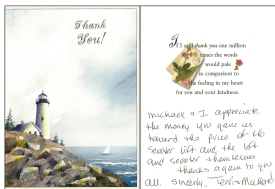 Thank
You!
If I said thank you one million
times the words
would pale
in comparison to
the feeling in my heart
for you and your kindness.
Michael & I appreciate
the money you gave us
toward the price of the
scooter lift and the lift
and scooter themselves
thanks again to you
all. Sincerely, Terri & Michael